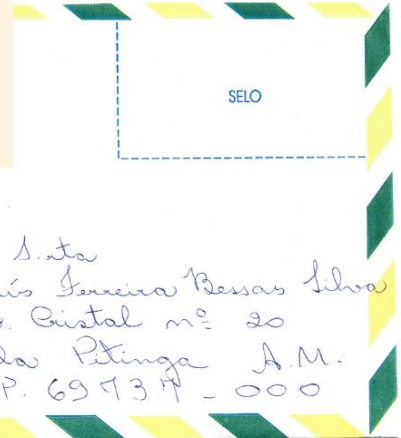 SELO
S.rta
ís Ferreira Bessas Silva
. Cristal nº 20
da Pitinga A.M.
P. 69737-000